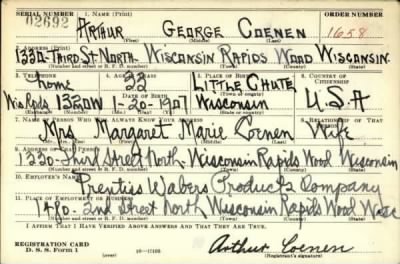 SERIAL NUMBER 1. NAME (Print) ORDER NUMBER
02692 ARTHUR GEORGE COENEN 1658
(First) (Middle) (Last)
2. ADDRESS (Print)
1330-THIRD ST. NORTH- WISCONSIN RAPIDS WOOD WISCONSIN
(Number and street or R. F. D. number) (Town) (County) (State)
3. TELEPHONE 4. AGE IN YEARS 5. PLACE OF BIRTH 6. COUNTRY OF CITIZENSHIP
home 33 LITTLE CHUTE
DATE OF BIRTH (Town or county)
Wis Rpds 1320W 1-20-1907 Wisconsin U.S.A
(Exchange) (Number) (Mo.) (Day) (Yr.) (State or country)
7. NAME OF PERSON WHO WILL ALWAYS KNOW YOUR ADDRESS 8. RELATIONSHIP OF THAT PERSON
Mrs Margaret Marie Coenen Wife
(Mr., Mrs., Miss) (First) (Middle) (Last)
9. ADDRESS OF THAT PERSON
1330-Third Street North- Wisconsin Rapids Wood Wisconsin
(Number and street or R. F. D. number) (Town) (County) (State)
10. EMPLOYER'S NAME
Prentiss Wabers Products Company
11. PLACE OF EMPLOYMENT OR BUSINESS
1480- 2nd Street North Wisconsin Rapids Wood Wisc
(Number and street or R. F. D. number) (Town) (County) (State)
I AFFIRM THAT I HAVE VERIFIED ABOVE ANSWERS AND THAT THEY ARE TRUE.
REGISTRATION CARD
D. S. S. Form 1 16-17105 Arthur Coenen
(Registrant's signature)